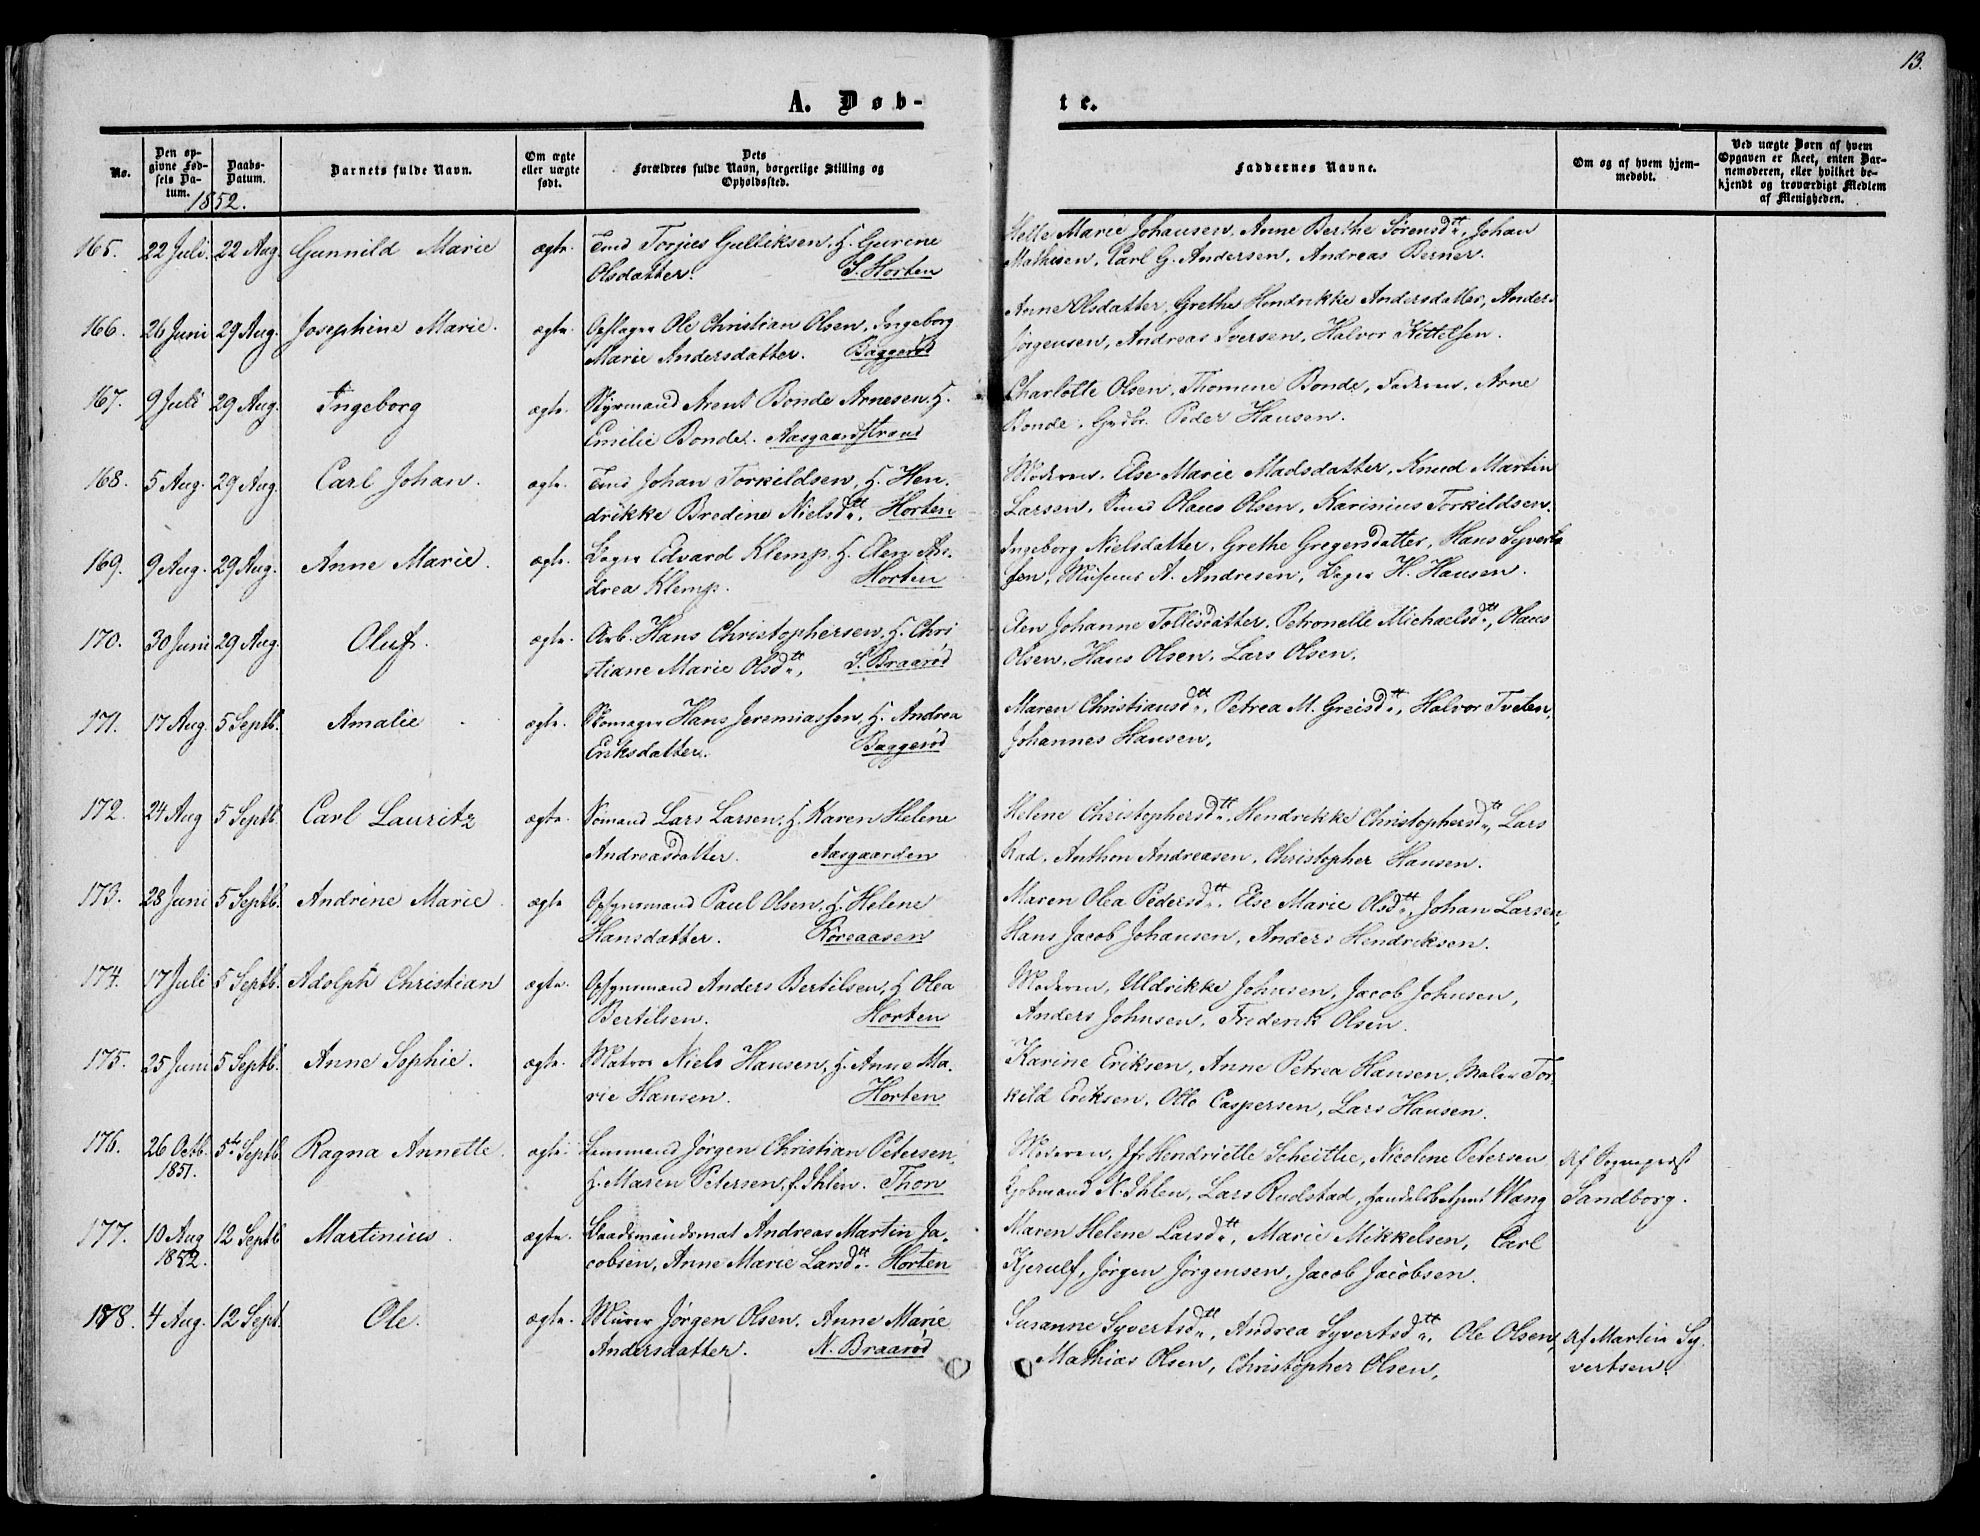 13.
A. Døb-
te.
No.
Den op-
givne Fød-
sels Da-
tum.
Daabs-
Datum.
Barnets fulde Navn.
Om ægte
eller uægte
født.
Dets
Forældres fulde Navn, borgerlige Stilling og
Opholdssted.
Faddernes Navne.
Om og af hvem hjem-
medøbt.
Ved uægte Børn af hvem
Opgaven er skeet, enten Bar-
nemoderen, eller hvilket be-
kjendt og troværdigt Medlem
af Menigheden.
1852.
165. 22 Juli. 22 Aug. Gunnild Marie ægte. Tmd Torjus Gulliksen, H. Gurine
Olsdatter. S. Horten
Helle Marie Johansen, Anne Berthe Sørensdtt., Johan
Mathisen, Carl G. Andersen, Andreas Berner.
166. 26 Juni 29 Aug. Josephine Marie. ægte. Opslager Ole Christian Olsen, Ingeborg
Marie Andersdatter. Baggerød
Anne Olsdatter, Grethe Hendrikke Andersdatter, Anders
Jørgensen, Andreas Iversen, Halvor Kittelsen.
167. 9 Juli 29 Aug. Ingeborg ægte. Styrmand Arent Bonde Arnesen, H.
Emilie Bonde. Aasgaardstrand
Charlotte Olsen, Thomine Bonde, Faderen, Arne
Bonde, Peder Hansen.
168. 5 Aug. 29 Aug. Carl Johan. ægte. Tmd Johan Torkildsen, H. Hen-
drikke Bredine Nielsdtt. Horten
Moderen, Else Marie Madsdatter, Knud Martin
Larsen, Olaus Olsen, Karinius Torkildsen.
169. 9 Aug. 29 Aug. Anne Marie. ægte. Bager Edvard Klemp, H. Elen An-
drea Klemp. Horten
Ingeborg Nielsdatter, Grethe Gregersdatter, Hans Syvert-
sen, A. Andresen, Bager H. Hansen.
170. 30 Juni 29 Aug. Oluf. ægte. Arb. Hans Christophersen, H. Chri
stiane Marie Olsdtt., S. Braarød
Elen Johanne Tollisdatter, Petronelle Michaelsdtt., Olaus
Olsen, Hans Olsen, Lars Olsen.
171. 17 Aug. 5 Septb. Amalie ægte. Skomager Hans Jeremiassen, H. Andrea
Eriksdatter. Baggerød
Maren Christiansdtt., Petrea M. Greisdtt., Halvor Tveten,
Johannes Hansen.
172. 24 Aug 5 Septb. Carl Lauritz ægte. Sømand Lars Larsen, H. Karen Helene
Andreasdatter. Aasgaarden
Helene Christophersdtt., Hendrikke Christophersdtt., Lars
Rad, Anthon Andreasen, Christopher Hansen.
173. 28 Juni 5 Septb. Andrine Marie. ægte Opsynsmand Paul Olsen, H. Helene
Hansdatter. Røreaasen
Maren Olea Pedersdtt., Else Marie Olsdtt., Johan Larsen,
Hans Jacob Johansen, Anders Hendriksen.
174. 17 Juli 5 Septb. Adolph Christian ægte. Opsynsmand Anders Bertilsen, H. Olea
Bertilsen. Horten
Moderen, Uldrikke Johnsen, Jacob Johnsen,
Anders Johnsen, Frederik Olsen.
175. 25 Juni 5 Septb. Anne Sophie. ægte. Matros Niels Hansen, H. Anne Ma-
rie Hansen. Horten
Karine Eriksen, Anne Petrea Hansen, Maler Tor-
kild Eriksen, Otto Caspersen, Lars Hansen.
176. 26 Octb. 1851. 5te Septb Ragna Annette. ægte. Lensmand Jørgen Christian Petersen,
H. Maren Petersen, f. Ihlen. Thon
Moderen, Jfr Hendriette Scheitlie, Nicolene Petersen
Kjøbmand N. Ihlen, Lars Rudstad, Handelsbetjent Wang
Af Sognepræst
Sandborg.
177. 10 Aug 1852. 12 Septb Martinius. ægte. Baadsmandsmat Andreas Martin Ja-
cobsen, Anne Marie Larsdtt. Horten
Maren Helene Larsdtt., Marie Mikkelsen, Carl
Kjerulf, Jørgen Jørgensen, Jacob Jacobsen.
178. 4 Aug. 12 Sept. Ole. ægte. Murer Jørgen Olsen, Anne Marie
Andersdatter. N. Braarød
Susanne Syvertsdtt., Andrea Syvertsdtt., Ole Olsen,
Mathias Olsen, Christopher Olsen,
Af Martin Sy-
vertsen.